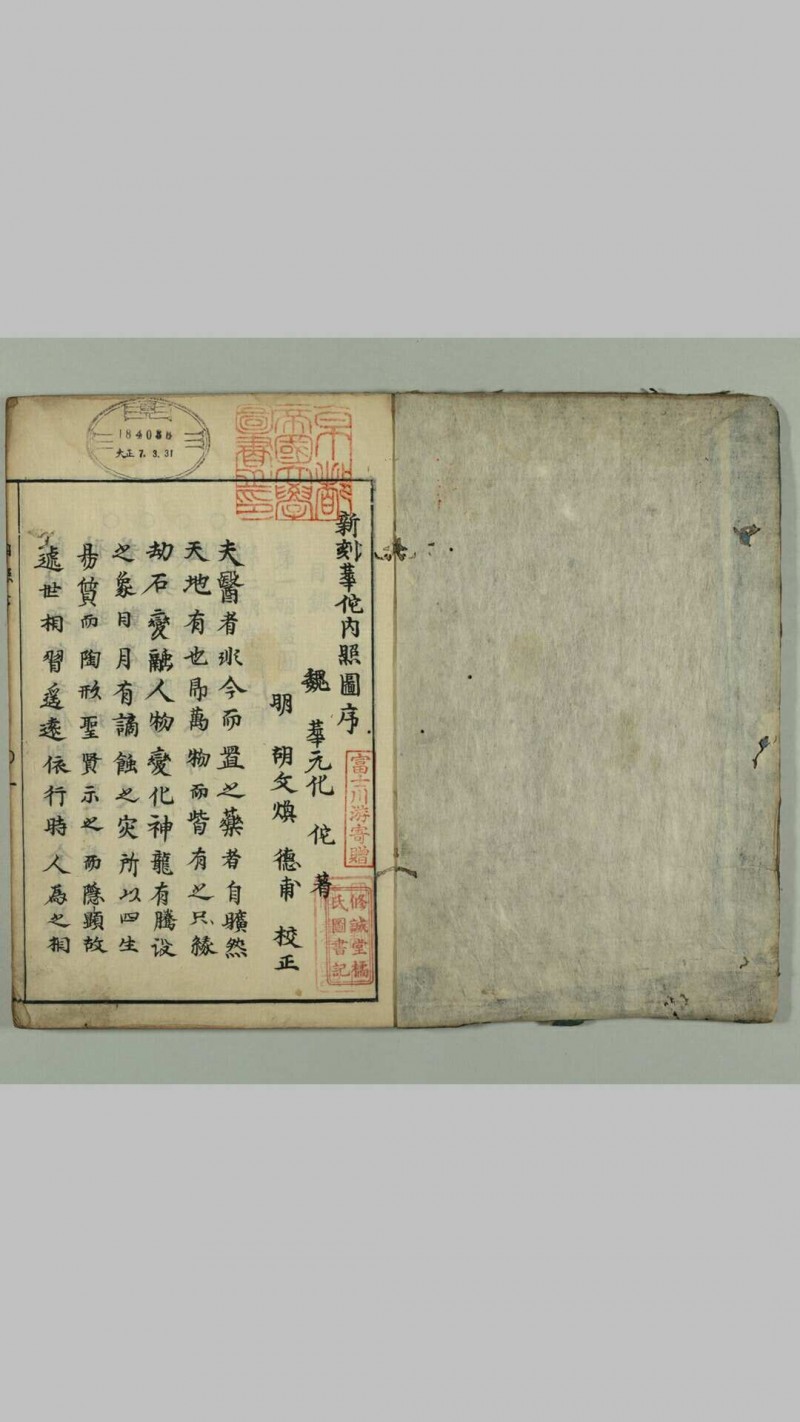 新刻華佗內照圖序
魏 華元化 佗 著
明 胡文煥 德甫 校正
夫醫者非今而置之藥者自曠然
天地有也即萬物而皆有之只緣
劫石變融人物變化神龍有騰沒
之象日月有讁蝕之灾所以四生
易質而陶形聖賢示之而隱顯故
遞世相習爰遠依行時人爲之相
京都
帝國大學
圖書之印
184038
大正 7. 3. 31
富士川游寄贈
修誠堂橘
氏圖書記